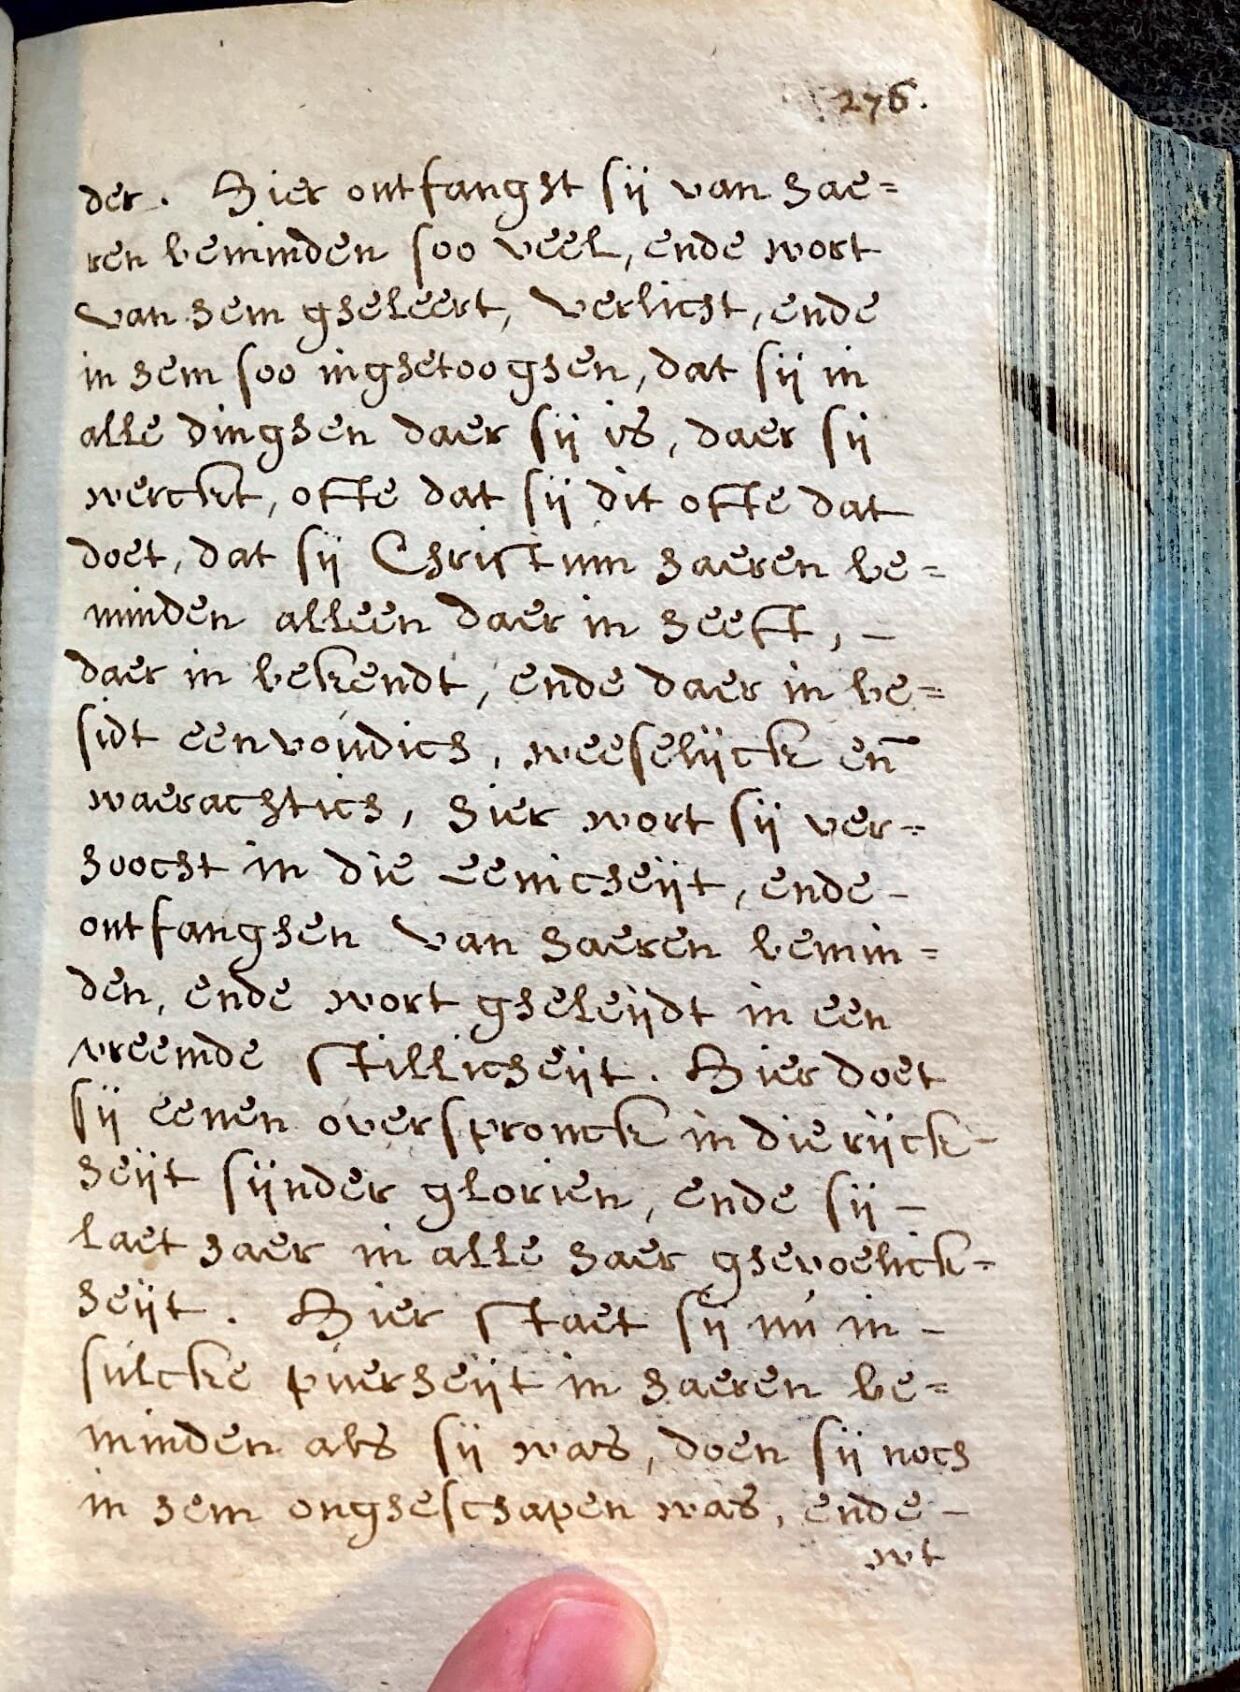 276.
der. Hier ontfanght sij van hae=
ren beminden soo veel, ende wort
van hem gheleert, verlicht, ende
in hem soo inghetooghen, dat sij in
alle dinghen daer sij is, daer sij
werckt, ofte dat sij dit ofte dat
doet, dat sij Christum haeren be=
minden alleen daer in heeft, –
daer in bekendt, ende daer in be=
sidt eenvoudich, weeselijck en̄
waerachtich, hier wort sij ver=
hoocht in die eenicheijt, ende –
ontfanghen van haeren bemin=
den, ende wort gheleijdt in een
vreemde stillicheijt. Hier doet
sij eenen overspronck in die rijck-
heijt sijnder glorien, ende sij –
laet haer in alle haer ghevoelick=
heijt. Hier staet sij nu in –
sulcke puerheijt in haeren be=
minden als sij was, doen sij noch
in hem ongheschapen was, ende –
wt